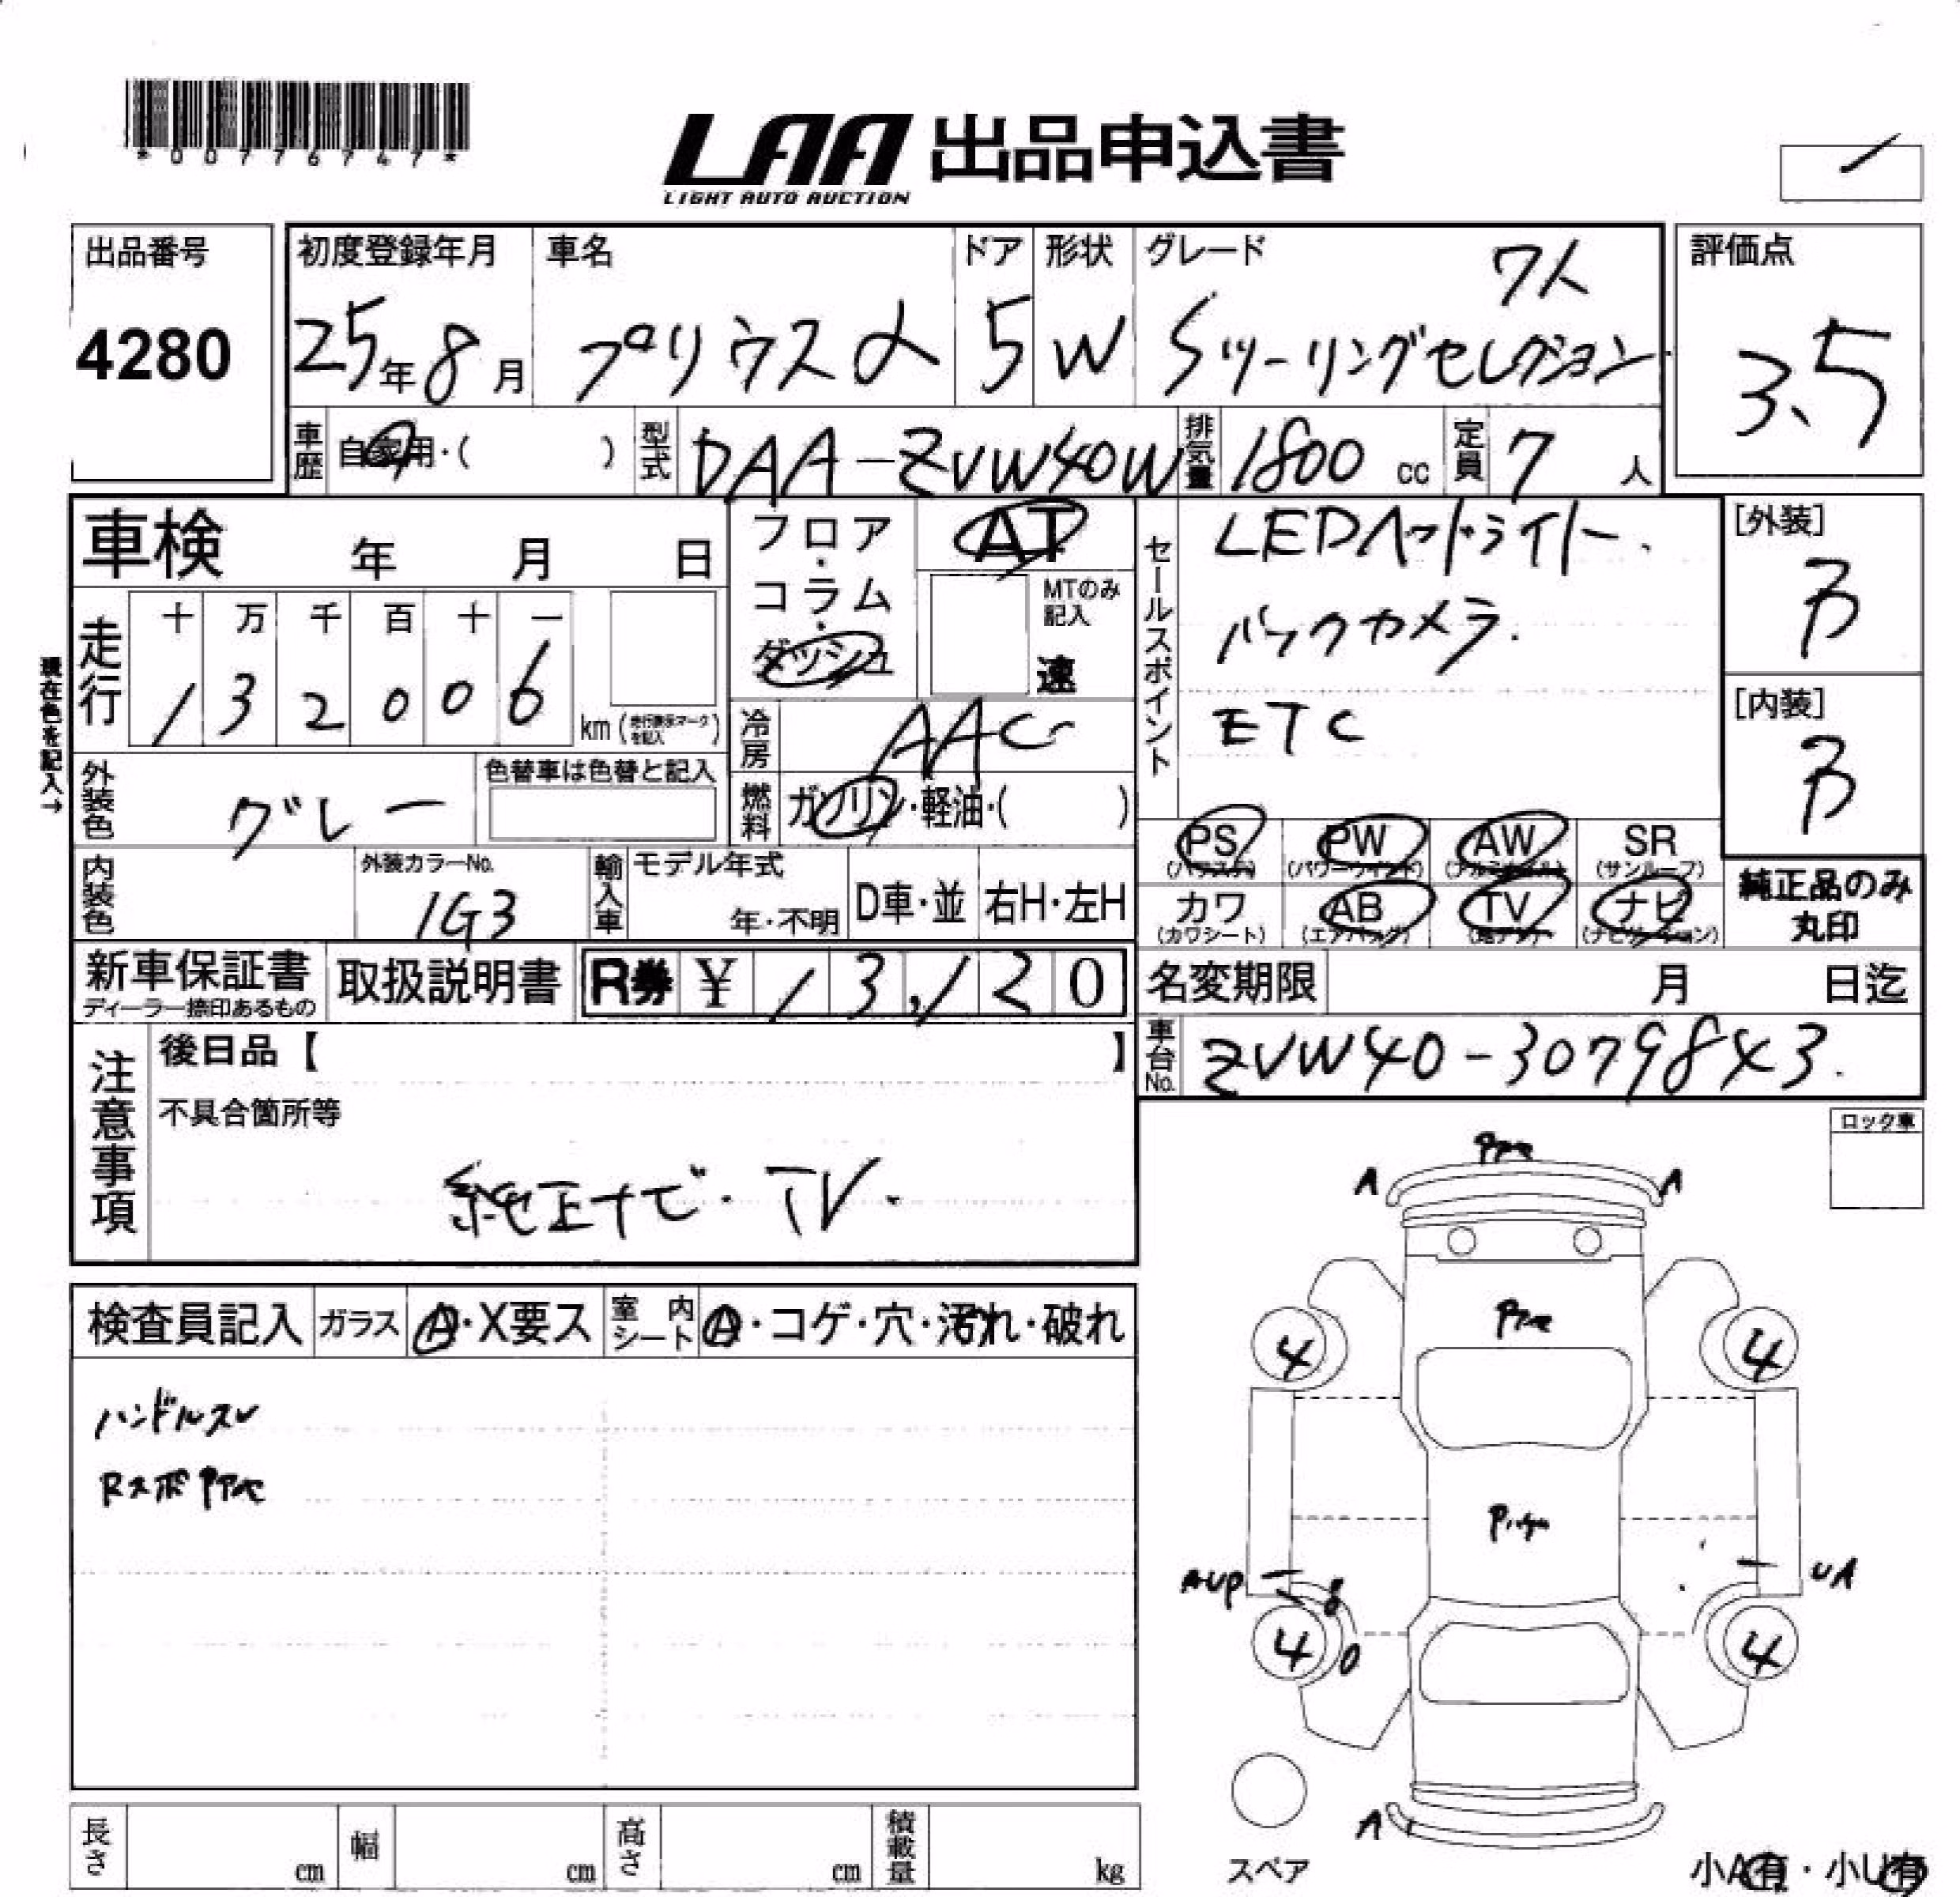 *00776747*
LAA 出品申込書
LIGHT AUTO AUCTION
出品番号
4280
初度登録年月
25年8月
車名
プリウスα
ドア
5
形状
W
グレード
7人
Sツーリングセレクション
評価点
3.5
車歴
自家用・( )
型式
DAA-ZVW40W
排気量
1800 cc
定員
7 人
車検 年 月 日
フロア・コラム・ダッシュ
AT
MTのみ記入
速
セールスポイント
LEDヘッドライト.
バックカメラ.
ETC
[外装]
B
[内装]
B
現在色を記入→
走行
十 万 千 百 十 一
1 3 2 0 0 6
km (走行表示マークを記入)
冷房
AAC
外装色
グレー
色替車は色替と記入
燃料
ガソリン・軽油・( )
PS
(パワステ)
PW
(パワーウインド)
AW
(アルミホイル)
SR
(サンルーフ)
内装色
外装カラーNo.
1G3
輸入車
モデル年式
年・不明
D車・並
右H・左H
カワ
(カワシート)
AB
(エアバッグ)
TV
(地デジ)
ナビ
(ナビゲーション)
純正品のみ
丸印
新車保証書
ディーラー捺印あるもの
取扱説明書
R券 ¥ 13,120
名変期限 月 日迄
車台No.
ZVW40-3079843.
注意事項
後日品【 】
不具合箇所等
純正ナビ・TV.
ロック車
検査員記入
ガラス
A・X要ス
室内シート
A・コゲ・穴・汚れ・破れ
ハンドルスレ
A
A
4
4
AUP
UA
4
4
A
スペア
小A有・小U有
長さ cm
幅 cm
高さ cm
積載量 kg